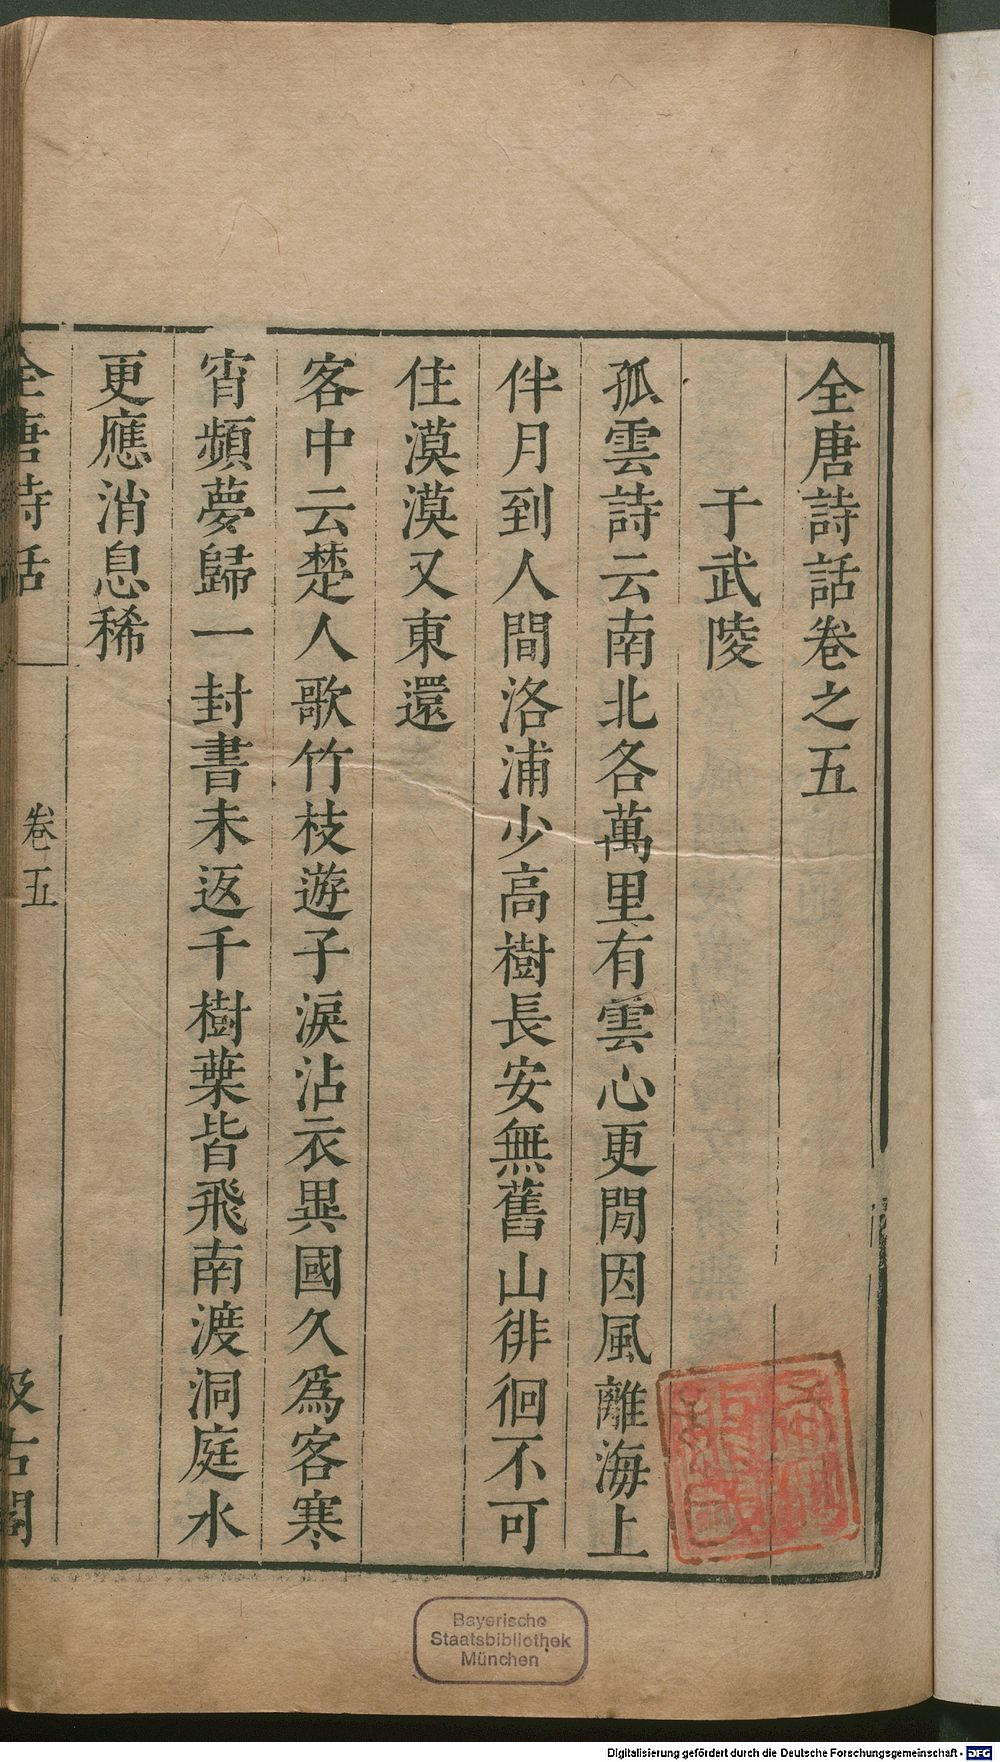 全唐詩話卷之五
于武陵
孤雲詩云南北各萬里有雲心更閒因風離海上
伴月到人間洛浦少高樹長安無舊山徘徊不可
住漠漠又東還
客中云楚人歌竹枝遊子淚沾衣異國久爲客寒
宵頻夢歸一封書未返千樹葉皆飛南渡洞庭水
更應消息稀
全唐詩話
卷五
汲古閣
Bayerische
Staatsbibliothek
München
Digitalisierung gefördert durch die Deutsche Forschungsgemeinschaft - DFG